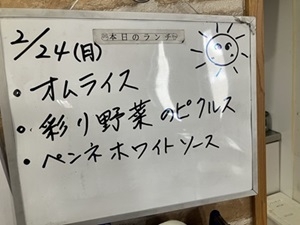 本日のランチ
2/24(月)
• オムライス
• 彩り野菜のピクルス
• ペンネホワイトソース